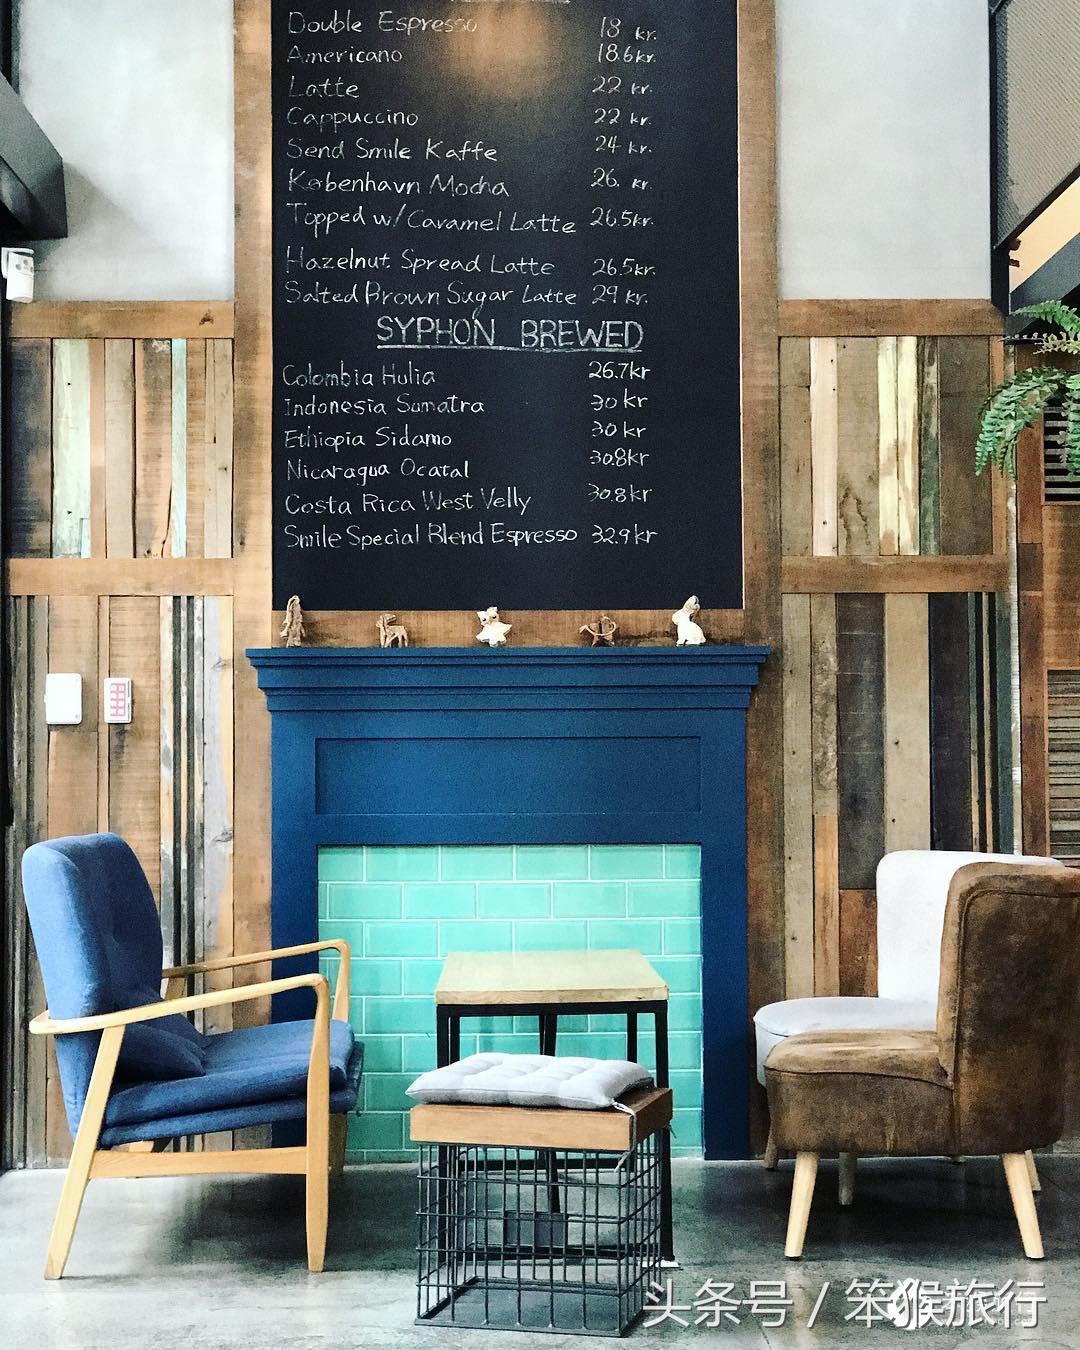 Double Espresso 18 kr.
Americano 18.6kr.
Latte 22 kr.
Cappuccino 22 kr.
Send Smile Kaffe 24 kr.
København Mocha 26. kr.
Topped w/Caramel Latte 26.5kr.
Hazelnut Spread Latte 26.5kr.
Salted Brown Sugar Latte 29 kr.
SYPHON BREWED
Colombia Hulia 26.7kr
Indonesia Sumatra 30 kr
Ethiopia Sidamo 30 kr
Nicaragua Ocatal 30.8kr
Costa Rica West Velly 30.8kr
Smile Special Blend Espresso 32.9kr
头条号 / 笨猴旅行